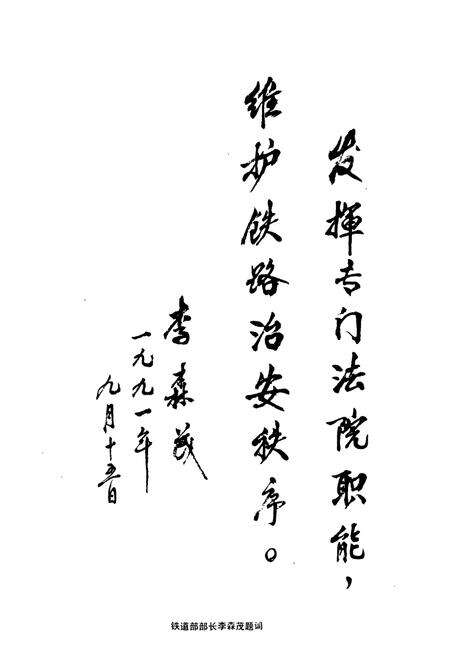 发挥专门法院职能，
维护铁路治安秩序。
李森茂
一九九一年
九月十五日
铁道部部长李森茂题词